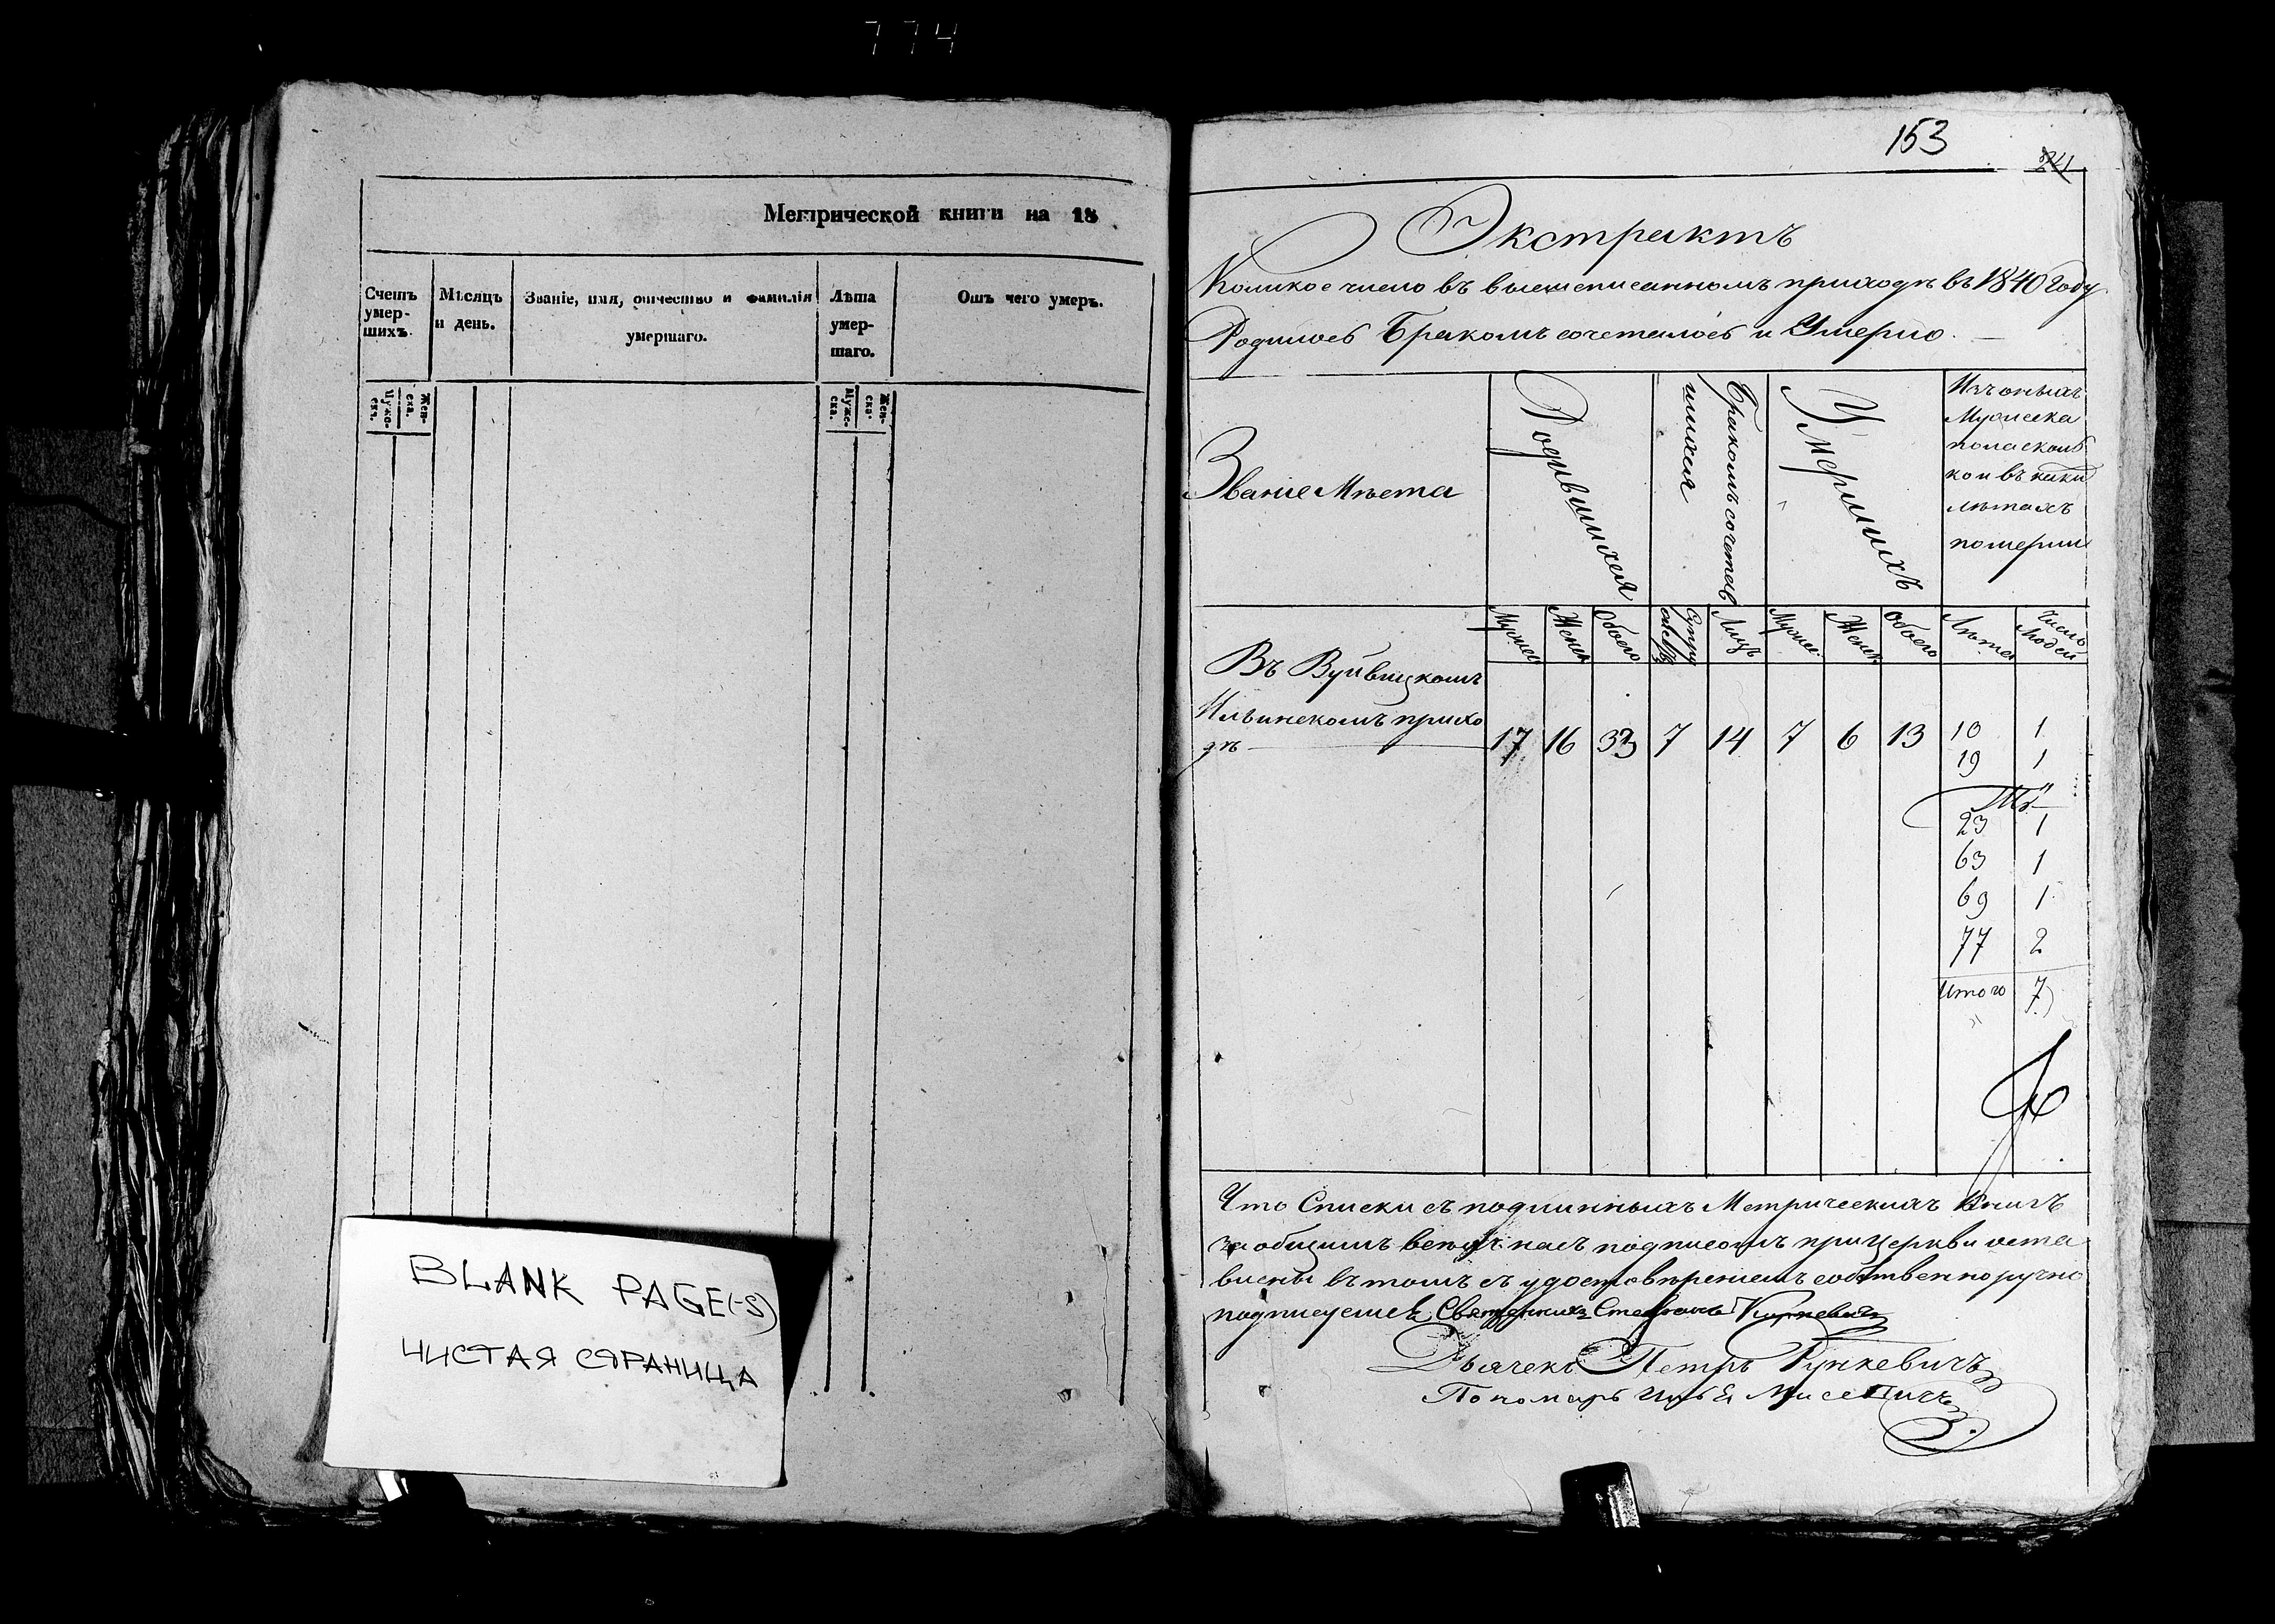 774
Метрической книги на 18
Счетъ умер-шихъ.
Мѣсяцъ и день.
Званіе, имя, отчество и фамилія умершаго.
Лѣта умер-шаго.
Отъ чего умеръ.
Муже-скъ.
Жен-ска.
Муже-ска.
Жен-ска.
BLANK PAGE(-S)
ЧИСТАЯ СТРАНИЦА
153
Экстрактъ
Коликое число въ вышеписанномъ приходѣ въ 1840 Году
Родилось Бракомъ сочеталось и Умерло.
Званіе Мѣста
Родившихся
Бракомъ сочетав
шихся
Умершихъ
Изъ оныхъ
Мужеска
пола сколь
ко и въ какихъ
лѣтахъ
померли
Мужес
Женск
Обоего
Лицъ
Мужес
Женск
Обоего
Лѣта
Число
Людей
Въ Вуйвицкомъ
Ильинскомъ прихо
дѣ 17 16 33 7 14 7 6 13 10 1
19 1
23 1
63 1
69 1
77 2
Итого 7
Что Списки съ подлинныхъ Метрическихъ Книгъ
за общимъ всѣхъ насъ подписомъ при Церкви оста
влены въ томъ съ удостовѣреніемъ собственноручно
подписуемся Священникъ Стефанъ
Дьячекъ Петръ Рункевичъ
Пономарь Илья Мисевичъ